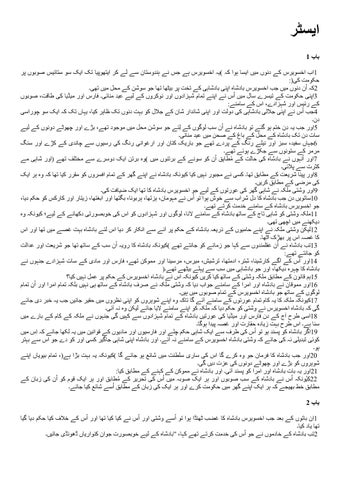 ایسٹر
باب 1
1اب اخسویرس کے دنوں میں ایسا ہوا کہ )یہ اخسویرس ہے جس نے ہندوستان سے لے کر ایتھوپیا تک ایک سو ستائیس صوبوں پر
حکومت کی(:
2کہ ان دنوں میں جب اخسویرس بادشاہ اپنی بادشاہی کے تخت پر بیٹھا تھا جو سوشن کے محل میں تھی.
3اپنی حکومت کے تیسرے سال میں اُس نے اپنے تمام شہزادوں اور نوکروں کے لیے عید منائی. فارس اور میڈیا کی طاقت، صوبوں
کے رئیس اور شہزادے، اس کے سامنے:
4جب اُس نے اپنی جلالی بادشاہی کی دولت اور اپنی شاندار شان کے جلال کو بہت دنوں تک ظاہر کیا، یہاں تک کہ ایک سو چوراسی
دن.
5اور جب یہ دن ختم ہو گئے تو بادشاہ نے اُن سب لوگوں کے لئے جو سوشن محل میں موجود تھے، بڑے اور چھوٹے دونوں کے لیے
سات دن تک بادشاہ کے محل کے باغ کے صحن میں عید منائی.
6جہاں سفید، سبز اور نیلے رنگ کے پردے تھے جو باریک کتان اور ارغوانی رنگ کی رسیوں سے چاندی کے کڑے اور سنگ
مرمر کے ستونوں سے جکڑے ہوئے تھے.
7اور انہوں نے بادشاہ کی حالت کے مطابق اُن کو سونے کے برتنوں میں )وہ برتن ایک دوسرے سے مختلف تھے( اور شاہی مے
کثرت سے پلائی.
8اور پینا شریعت کے مطابق تھا. کسی نے مجبور نہیں کیا کیونکہ بادشاہ نے اپنے گھر کے تمام افسروں کو مقرر کیا تھا کہ وہ ہر ایک
کی مرضی کے مطابق کریں.
9اور وشتی ملکہ نے شاہی گھر کی عورتوں کے لیے جو اخسویرس بادشاہ کا تھا ایک ضیافت کی.
10ساتویں دن جب بادشاہ کا دل شراب سے خوش ہوا تو اُس نے مہومان، بزتھا، ہربونا، بگتھا اور ابغتھا، زیتار اور کارکس کو حکم دیا،
جو اخسویرس بادشاہ کے سامنے خدمت کرتے تھے.
11ملکہ وشتی کو شاہی تاج کے ساتھ بادشاہ کے سامنے لانا، لوگوں اور شہزادوں کو اس کی خوبصورتی دکھانے کے لیے، کیونکہ وہ
دیکھنے میں اچھی تھی.
12لیکن وشتی ملکہ نے اپنے حامیوں کے ذریعہ بادشاہ کے حکم پر آنے سے انکار کر دیا اس لئے بادشاہ بہت غصے میں تھا اور اس
کا غصہ اس پر بھڑک اٹھا.
13تب بادشاہ نے اُن عقلمندوں سے کہا جو زمانے کو جانتے تھے، )کیونکہ بادشاہ کا رویہ اُن سب کے ساتھ تھا جو شریعت اور عدالت
کو جانتے تھے:
14اور اُس کے آگے کارشینا، شتر، ادمتھا، ترشیش، میرس، مرسینا اور مموکن تھے، فارس اور مادی کے سات شہزادے جنہوں نے
بادشاہ کا چہرہ دیکھا، اور جو بادشاہی میں سب سے پہلے بیٹھے تھے.(
15ہم قانون کے مطابق ملکہ وشتی کے ساتھ کیا کریں کیونکہ اس نے بادشاہ اخسویرس کے حکم پر عمل نہیں کیا؟
16اور مموقان نے بادشاہ اور امرا کے سامنے جواب دیا کہ وشتی ملکہ نے صرف بادشاہ کے ساتھ ہی نہیں بلکہ تمام امرا اور اُن تمام
لوگوں کے ساتھ جو بادشاہ اخسویرس کے تمام صوبوں میں ہیں.
17کیونکہ ملکہ کا یہ کام تمام عورتوں کے سامنے آئے گا تاکہ وہ اپنے شوہروں کو اپنی نظروں میں حقیر جانیں جب یہ خبر دی جائے
گی کہ بادشاہ اخسویرس نے وشتی کو حکم دیا کہ ملکہ کو اپنے سامنے لایا جائے لیکن وہ نہ آئی.
18اسی طرح آج کے دن فارس اور میڈیا کی عورتیں بادشاہ کے تمام شہزادوں سے کہیں گی جنہوں نے ملکہ کے کام کے بارے میں
سنا ہے. اس طرح بہت زیادہ حقارت اور غصہ پیدا ہوگا.
19اگر بادشاہ کو پسند ہو تو اُس کی طرف سے ایک شاہی حکم جاری ہو اور فارسیوں اور مادیوں کے قوانین میں یہ لکھا جائے کہ اس میں
کوئی تبدیلی نہ کی جائے کہ وشتی بادشاہ اخسویرس کے سامنے نہ آئے. اور بادشاہ اپنی شاہی جاگیر کسی اور کو دے جو اس سے بہتر
ہو.
20اور جب بادشاہ کا فرمان جو وہ کرے گا اس کی ساری سلطنت میں شائع ہو جائے گا )کیونکہ یہ بہت بڑا ہے(، تمام بیویاں اپنے
شوہروں کو بڑے اور چھوٹے دونوں کی عزت دیں گی.
21اور یہ بات بادشاہ اور امرا کو پسند آئی. اور بادشاہ نے مموکن کے کہنے کے مطابق کیا:
22کیونکہ اُس نے بادشاہ کے سب صوبوں اور ہر ایک صوبہ میں اُس کی تحریر کے مطابق اور ہر ایک قوم کو اُن کی زبان کے
مطابق خط بھیجے کہ ہر ایک اپنے گھر میں حکومت کرے اور ہر ایک کی زبان کے مطابق اُسے شائع کیا جائے.
باب 2
1ان باتوں کے بعد جب اخسویرس بادشاہ کا غضب ٹھنڈا ہوا تو اُسے وشتی اور اُس نے کیا کیا تھا اور اُس کے خلاف کیا حکم دیا گیا
تھا یاد کیا.
2تب بادشاہ کے خادموں نے جو اُس کی خدمت کرتے تھے کہا، "بادشاہ کے لیے خوبصورت جوان کنواریاں ڈھونڈی جائیں.